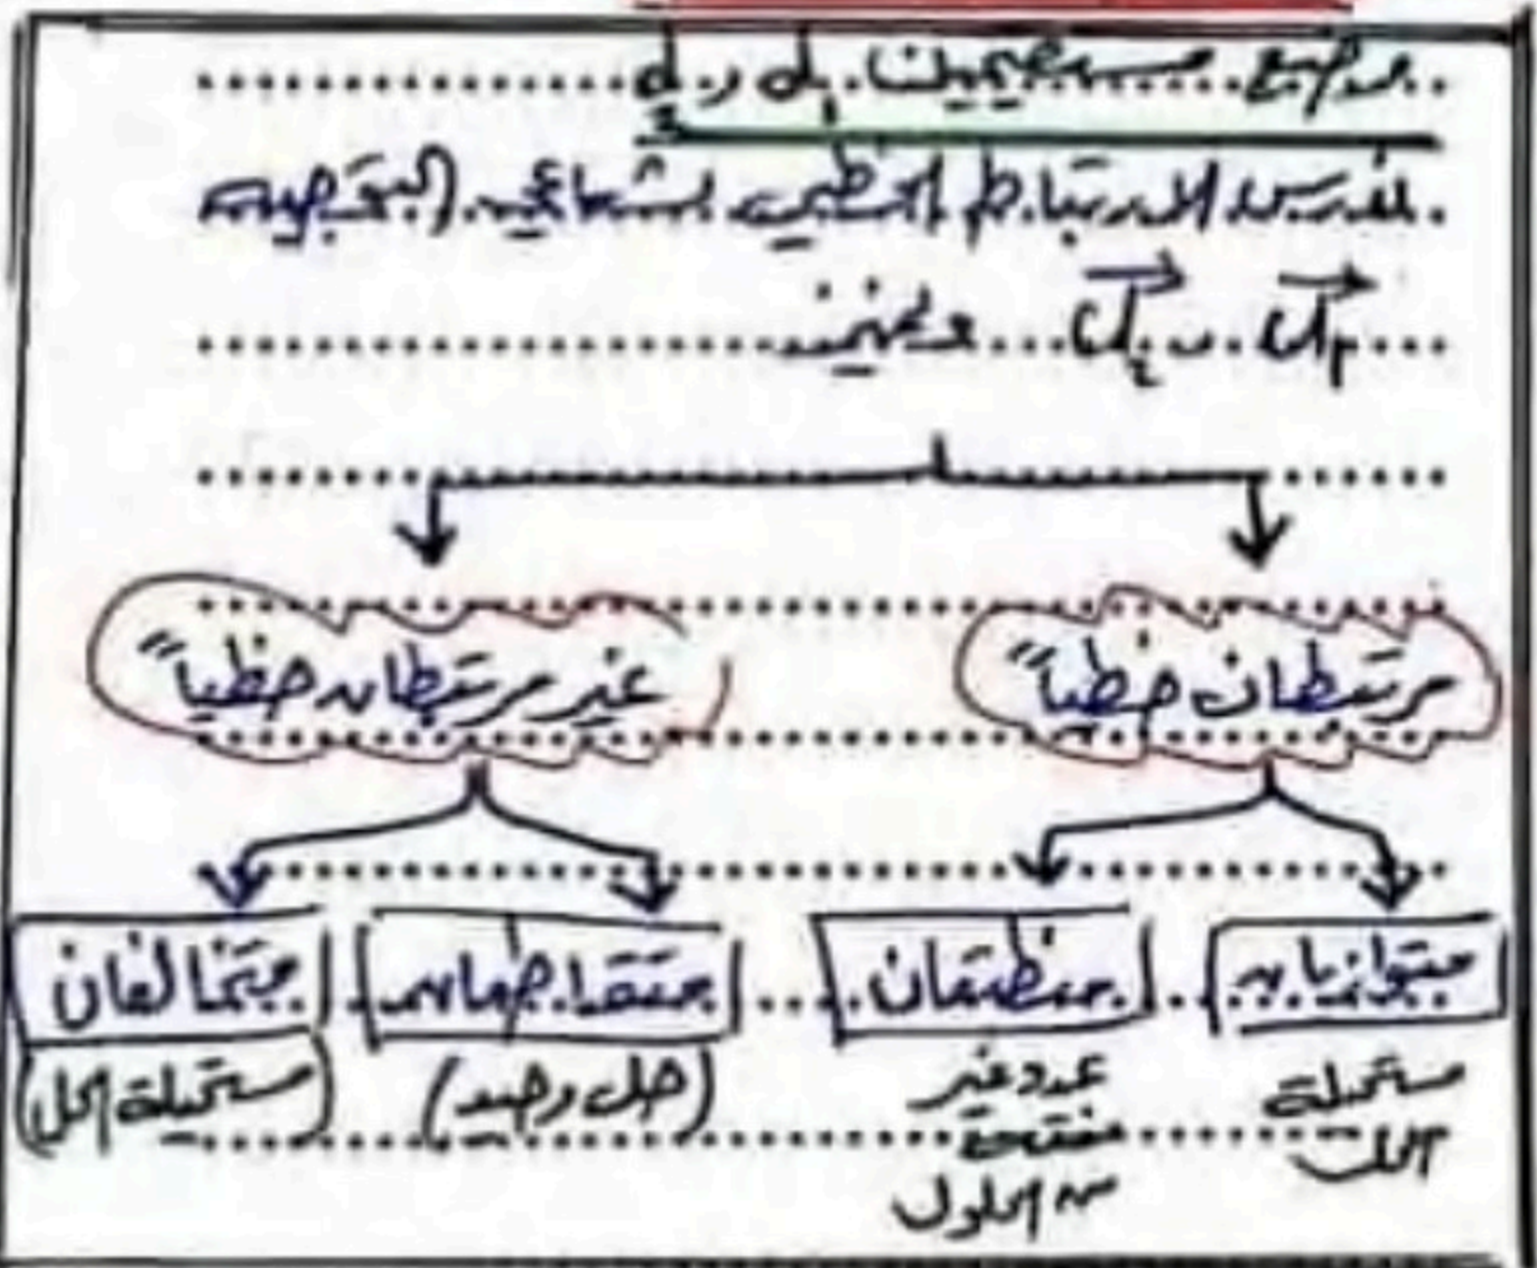 وضع مستقيمين d₁ و d₂
ندرس الارتباط الخطي لشعاعي التوجيه
u₁ ، u₂ ونميز
مرتبطان خطياً
غير مرتبطان خطياً
متوازيان
منطبقان
متقاطعان
متخالفان
مستحيلة
الحل
عدد غير
منته
من الحلول
(حل وحيد)
(مستحيلة الحل)